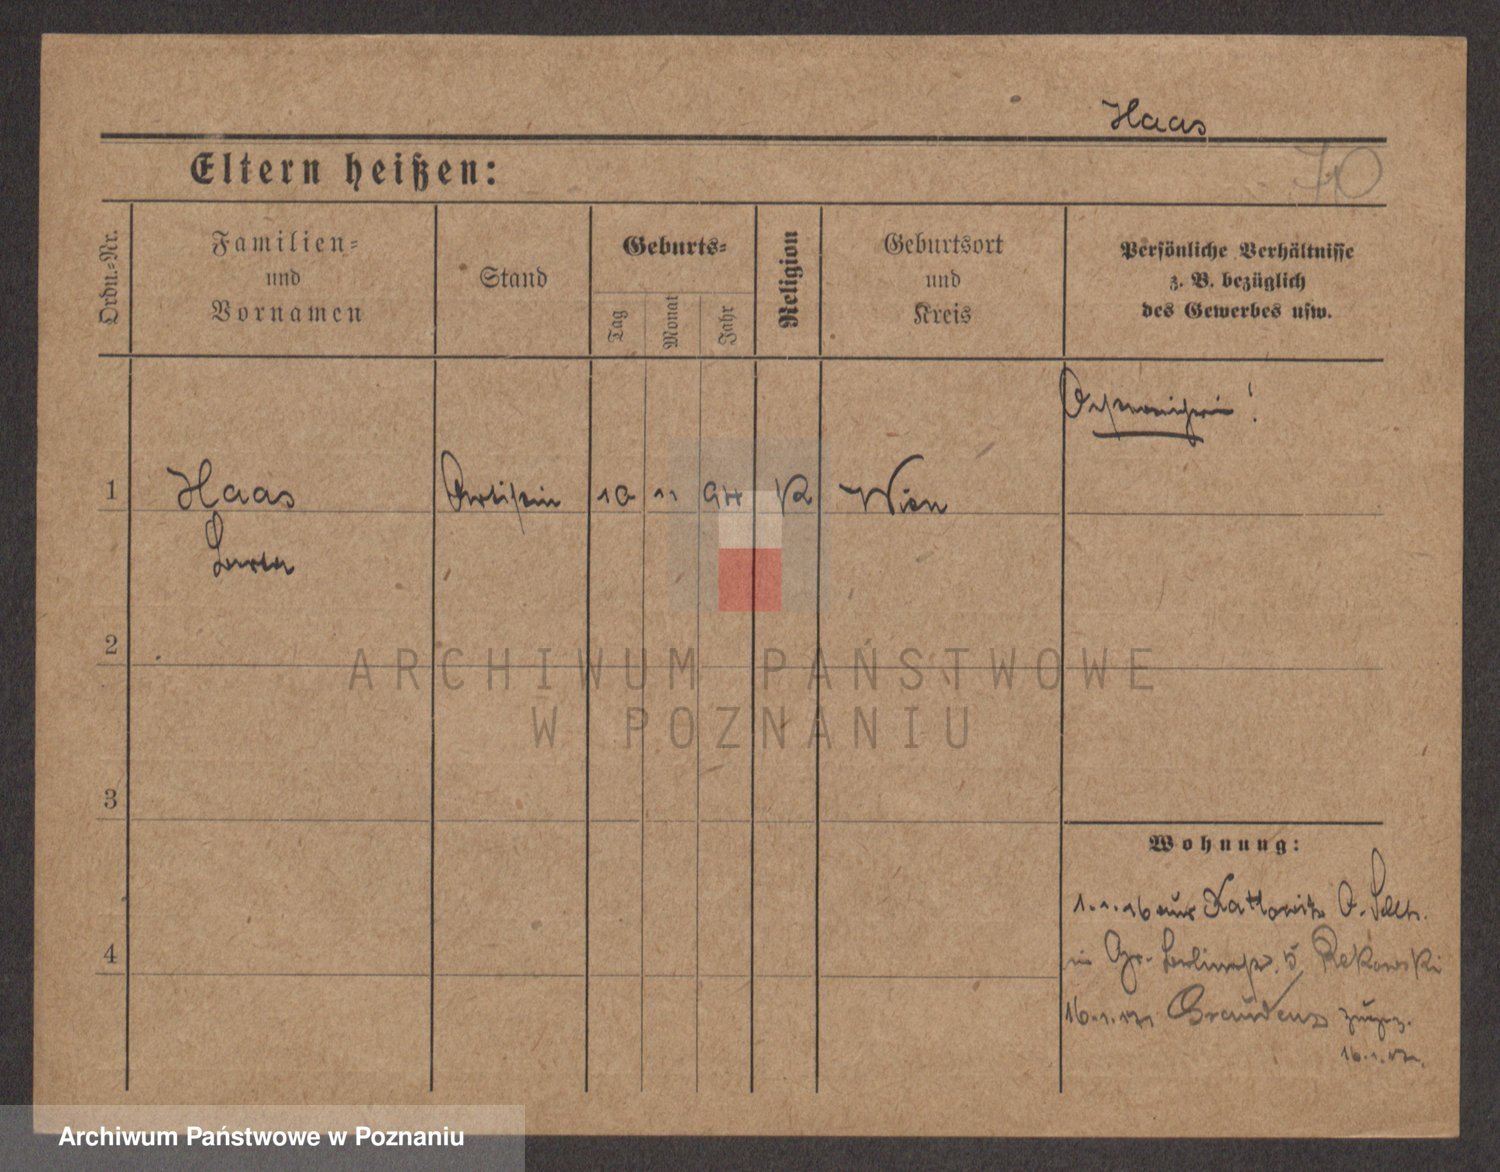 Haas
70
Eltern heißen:
Ordn.-Nr.
Familien-
und
Vornamen
Stand
Geburts-
Tag
Monat
Jahr
Religion
Geburtsort
und
Kreis
Persönliche Verhältnisse
z. B. bezüglich
des Gewerbes usw.
1
Haas
Artistin
10
11
94
K
Wien
Berta
2
3
4
Wohnung:
1.1.16 aus Kattowitz O. Schles.
in Gr. Berlinerstr. 5 Rekowski
16.1. Graudenz
16.1.
ARCHIWUM PAŃSTWOWE
W POZNANIU
Archiwum Państwowe w Poznaniu